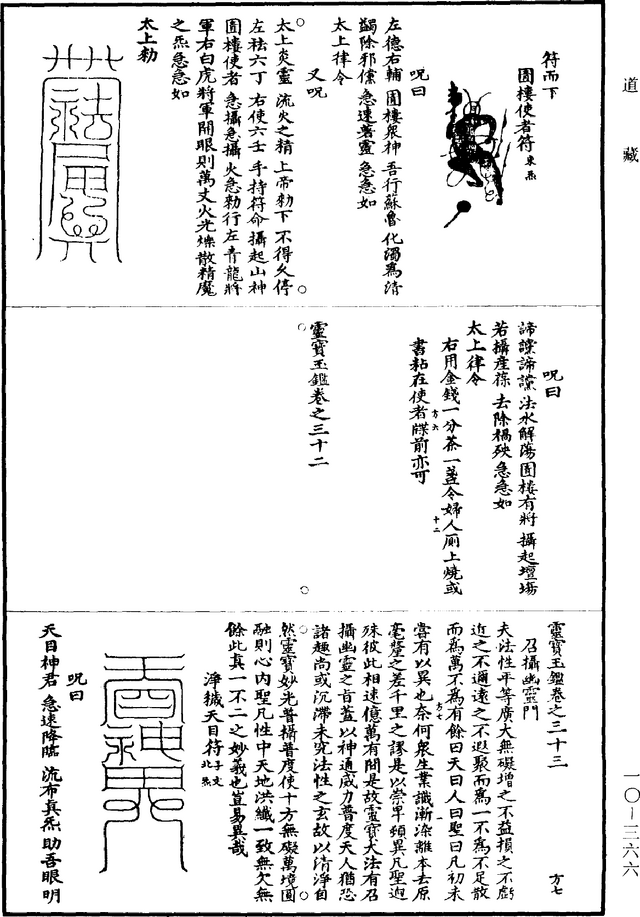 道藏
符而下
圊樓使者符 東炁
呪曰
左德右輔 圊樓衆神 吾行蘇魯 化濁爲清
蠲除邪儒 急速著靈 急急如
太上律令
又呪
太上炎靈 流火之精 上帝勑下 不得久停
左袪六丁 右使六壬 手持符命 攝起山神
圊樓使者 急攝急攝 火急勑行 左青龍將
軍右白虎將軍開眼則萬丈火光爍散精魔
之炁急急如
太上勑
呪曰
諦諦 法水解蕩 圊樓有將 攝起壇場
若攝産蓐 去除禍殃 急急如
太上律令
右用金錢一分茶一盞令婦人厠上燒或
書粘在使者牒前亦可
方六
十二
靈寶玉鑑卷之三十二
靈寶玉鑑卷之三十三
方七
召攝幽靈門
夫法性平等廣大無礙增之不益損之不虧
近之不邇遠之不遐聚而爲一不爲不足散
而爲萬不爲有餘曰天曰人曰聖曰凡初未
嘗有以異也奈何衆生業識漸染離本去原
毫釐之差千里之謬是以崇卑頻異凡聖逈
殊彼此相速億萬有間是故靈寶大法有召
攝幽靈之旨蓋以神通威力普度天人猶恐
諸趣尚或沉滯未究法性之玄故以清淨自
然靈寶妙光普攝普度使十方無礙萬境圓
融則心內聖凡性中天地洪纖一致無欠無
餘此真一不二之妙義也豈易異哉
方七
淨穢天目符 子文 北炁
呪曰
天目神君 急速降臨 流布真炁 助吾眼明
一〇－三六六